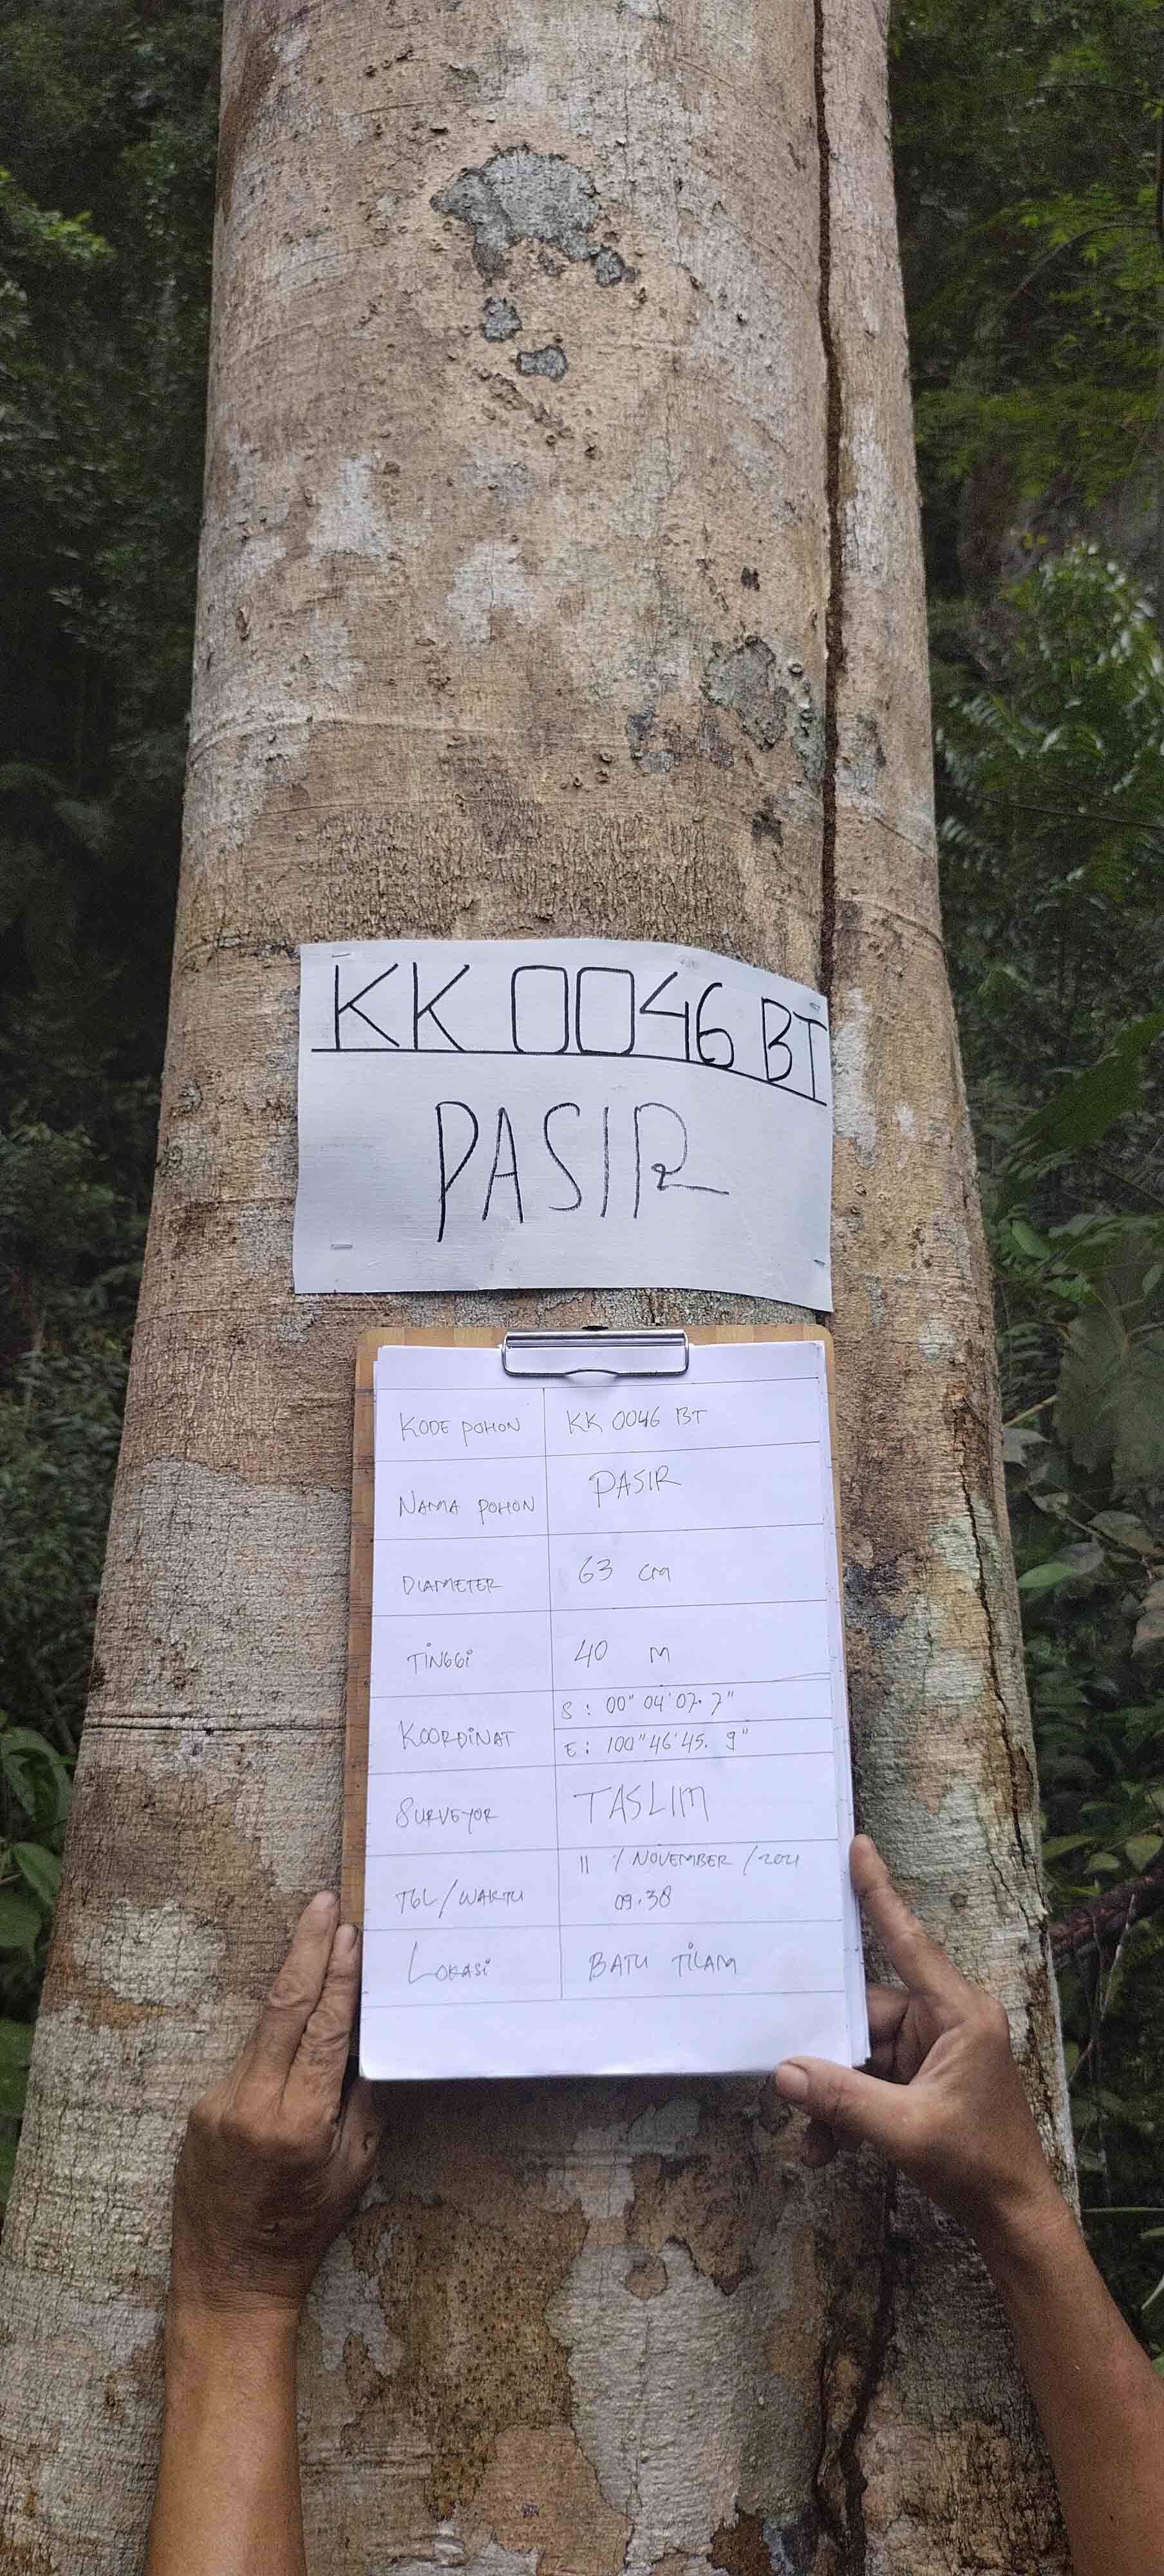 KK 0046 BT
PASIR
KODE POHON KK 0046 BT
NAMA POHON PASIR
DIAMETER 63 cm
TINGGI 40 M
KOORDINAT S : 00" 04' 07. 7"
E : 100" 46' 45. 9"
SURVEYOR TASLIM
TGL/WAKTU 11 / NOVEMBER / 2021
09.38
LOKASI BATU TILAM